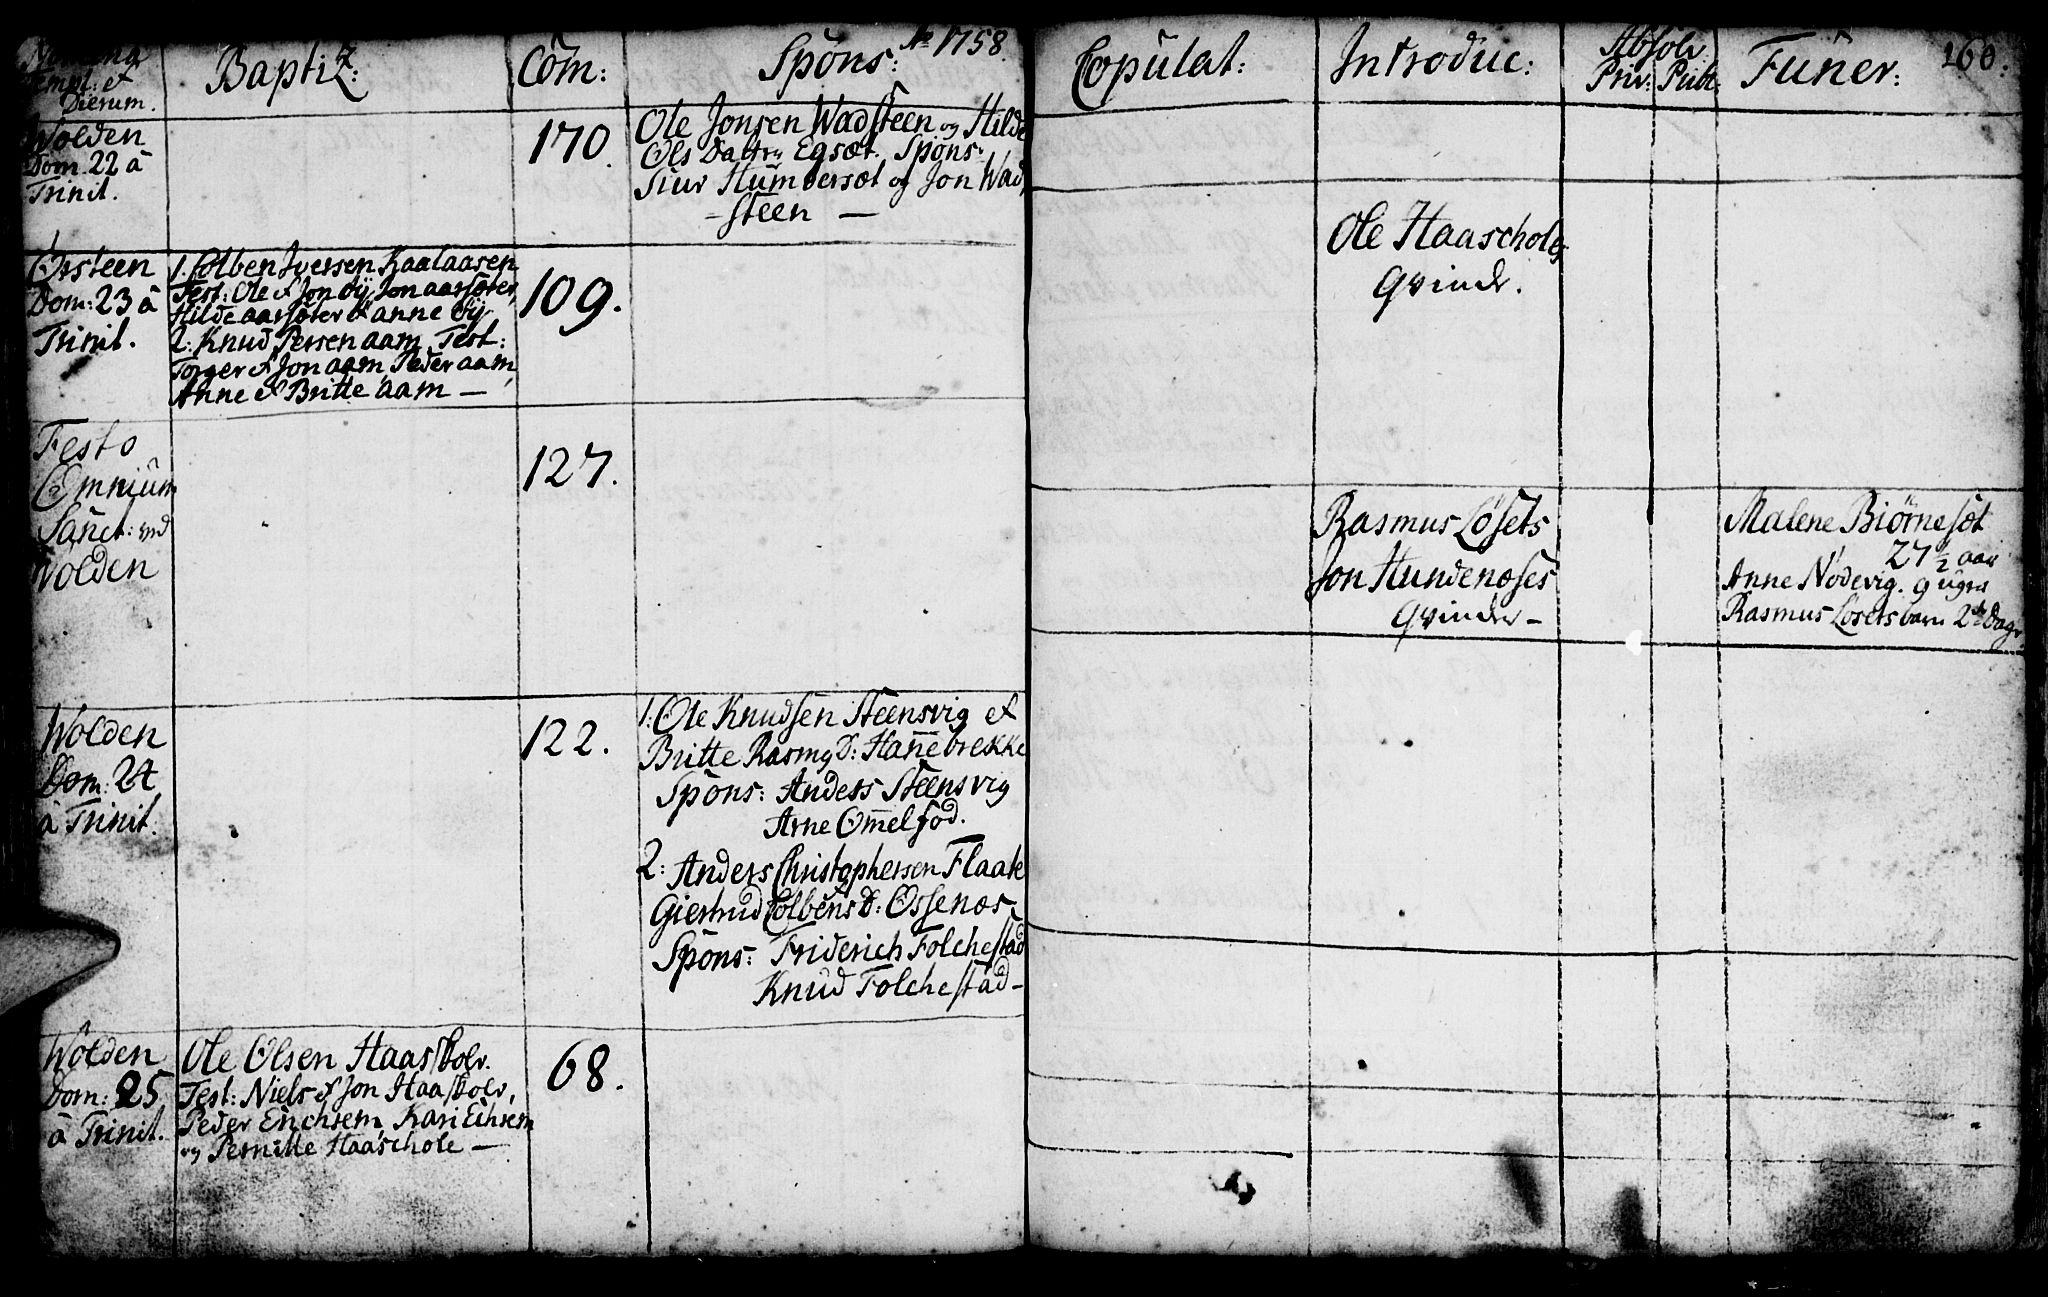 Nomina
Templ: et
Dierum.
Baptiz:
Com:
Spons:
Ao 1758.
Wolden
Dom. 22 à
Trinit.
170.
Ole Jonsen Wadsteen og Hilde
Ols Dattr Egsæt. Spons:
Siur Humbersæt og Jon Wad,
-steen —
Ørsteen
Dom: 23 à
Trinit.
1. Colben Iversen Kaalaasen
Test: Ole & Jon Øy, Jon aarsæter,
Hilde aarsæter & anne Øy
2: Knud Persen aam Test:
Torger & Jon aam, Peder aam,
Anne & Britte aam —
109.
Festo
Omnium
Sanct: ved
Wolden
127.
Wolden
Dom: 24
à Trinit.
122.
1: Ole Knudsen Steensvig et
Britte Rasmus D: Hannebrekke
Spons: Anders Steensvig
Arne Ommelfod.
2: Anders Christophersen Flaate
Giertrud Colbens D: Ossenæs
Spons: Friderich Folchestad
Knud Folchestad —
Wolden
Dom: 25
à Trinit.
Ole Olsen Haaskolv.
Test: Niels & Jon Haaskolv,
Peder Erichsem, Kari Eihsem
og Pernille Haaschole —
68.
Copulat:
Introduc:
Absolv
Priv: Publ:
Funer:
160.
Ole Haascholes
Qvinde.
Rasmus Løsets
Jon Hundenæses
Qvinder —
Malene Biørnesæt
27 1/2 aar
Anne Nødevig. 9 uger
Rasmus Løsets barn 2 Dage